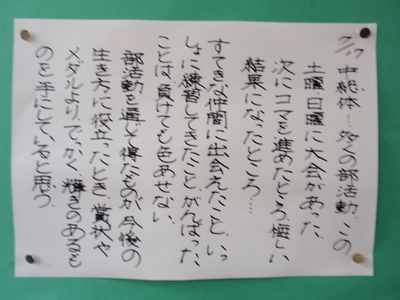 7/17 中総体…多くの部活動、この
土曜・日曜に大会があった。
次にコマを進めたところ、悔しい
結果になったところ…
すてきな仲間に出会えたこと、いっ
しょに練習してきたこと、がんばった
ことは、負けても色あせない。
部活動を通じ得たものが今後の
生き方に役立ったとき、賞状や
メダルより、でっかく輝きのあるも
のを手にしていると思う。